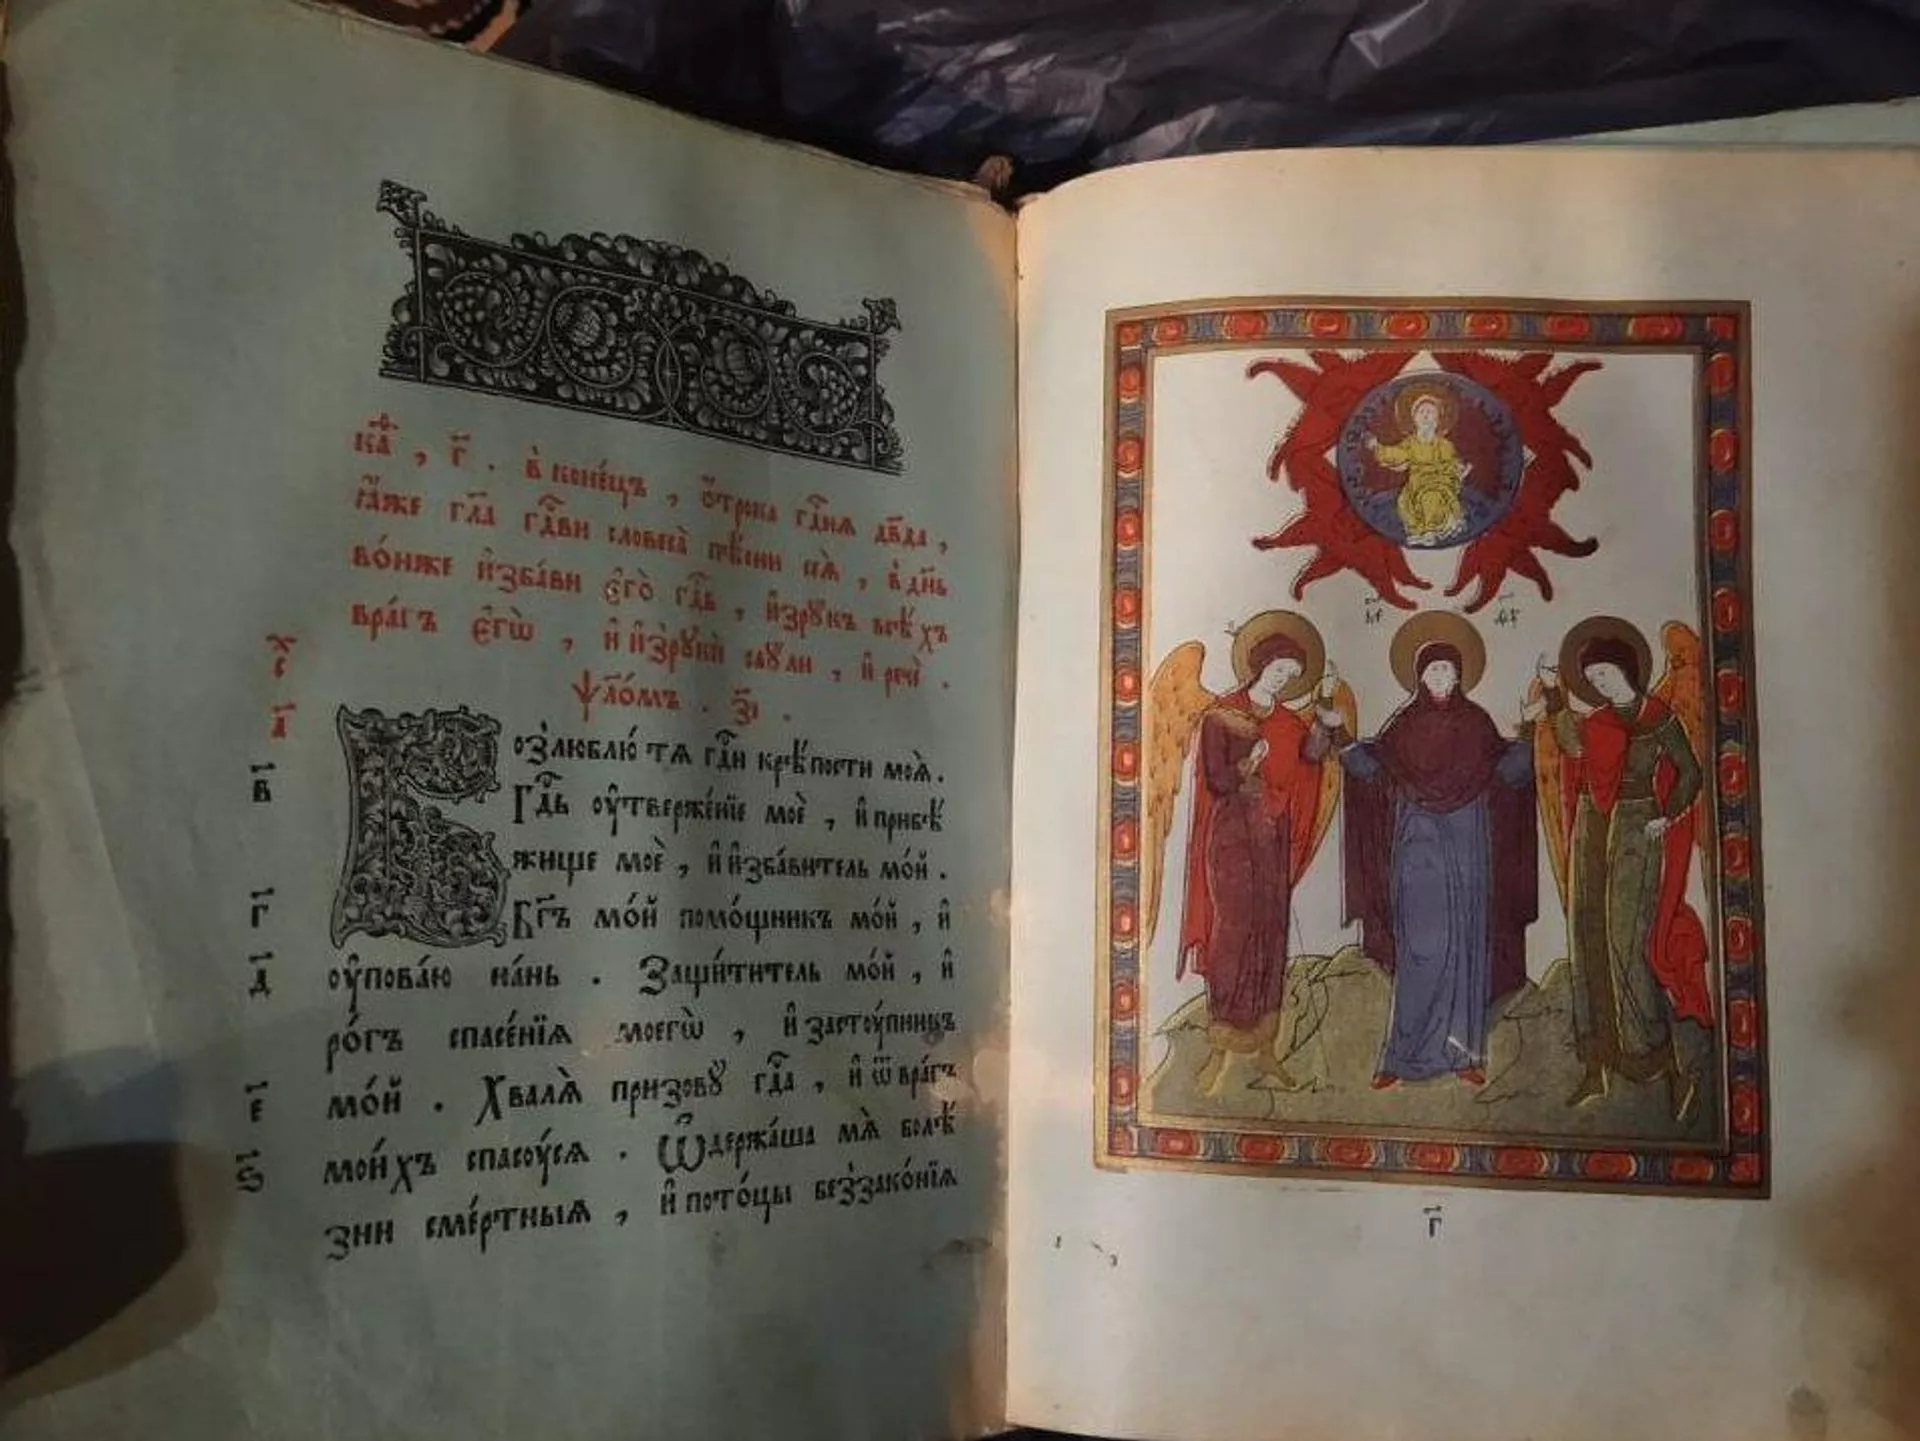 каѳ҃ , г҃ . в̾ коне́цъ , ѻ҆́трока гд҇ня дв҃да ,
ꙗ҆́же гл҃а гд҇ви словеса̀ пѣ́сни сеѧ̀ , в̾ дн҃ь
во́ньже и҆зба́ви є҆го̀ гд҇ь , и҆зрꙋкъ всѣ́хъ
вра́гъ є҆гѡ̀ , и҆ и҆зрꙋкѝ саꙋли , и҆ речѐ .
ѱало́мъ . з҃і .
а҃
Возлюблю́ тѧ гд҇и крѣ́пости моѧ̀ .
в҃
Гд҇ь ᲂу҆твержє́нїе моѐ , и҆ прибѣ́
жище моѐ , и҆ и҆зба́витель мо́й .
г҃
Бг҃ъ мо́й помо́щникъ мо́й , и҆
д҃
ᲂу҆пова́ю на́нь . Защи́титель мо́й , и҆
ро́гъ спасе́нїѧ моегѡ̀ , и҆ застꙋ́пникъ
е҃
мо́й . Хвалѧ̀ призовꙋ̀ гд҇а , и҆ ѿ вра́гъ
ѕ҃
мои́хъ спасᲂу́сѧ . Ѡ҆держа́ша мѧ̀ болѣ́
зни сме́ртныѧ , и҆ пото́цы беззако́нїѧ
г҃